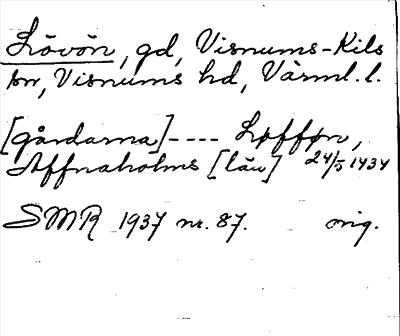 Lövön, gd, Visnums-Kils
sn, Visnums hd, Värml. l.
[gårdarna] ---- Løfføn,
Affnaholms [län] 24/5 1434
SMR 1937 nr. 87. orig.